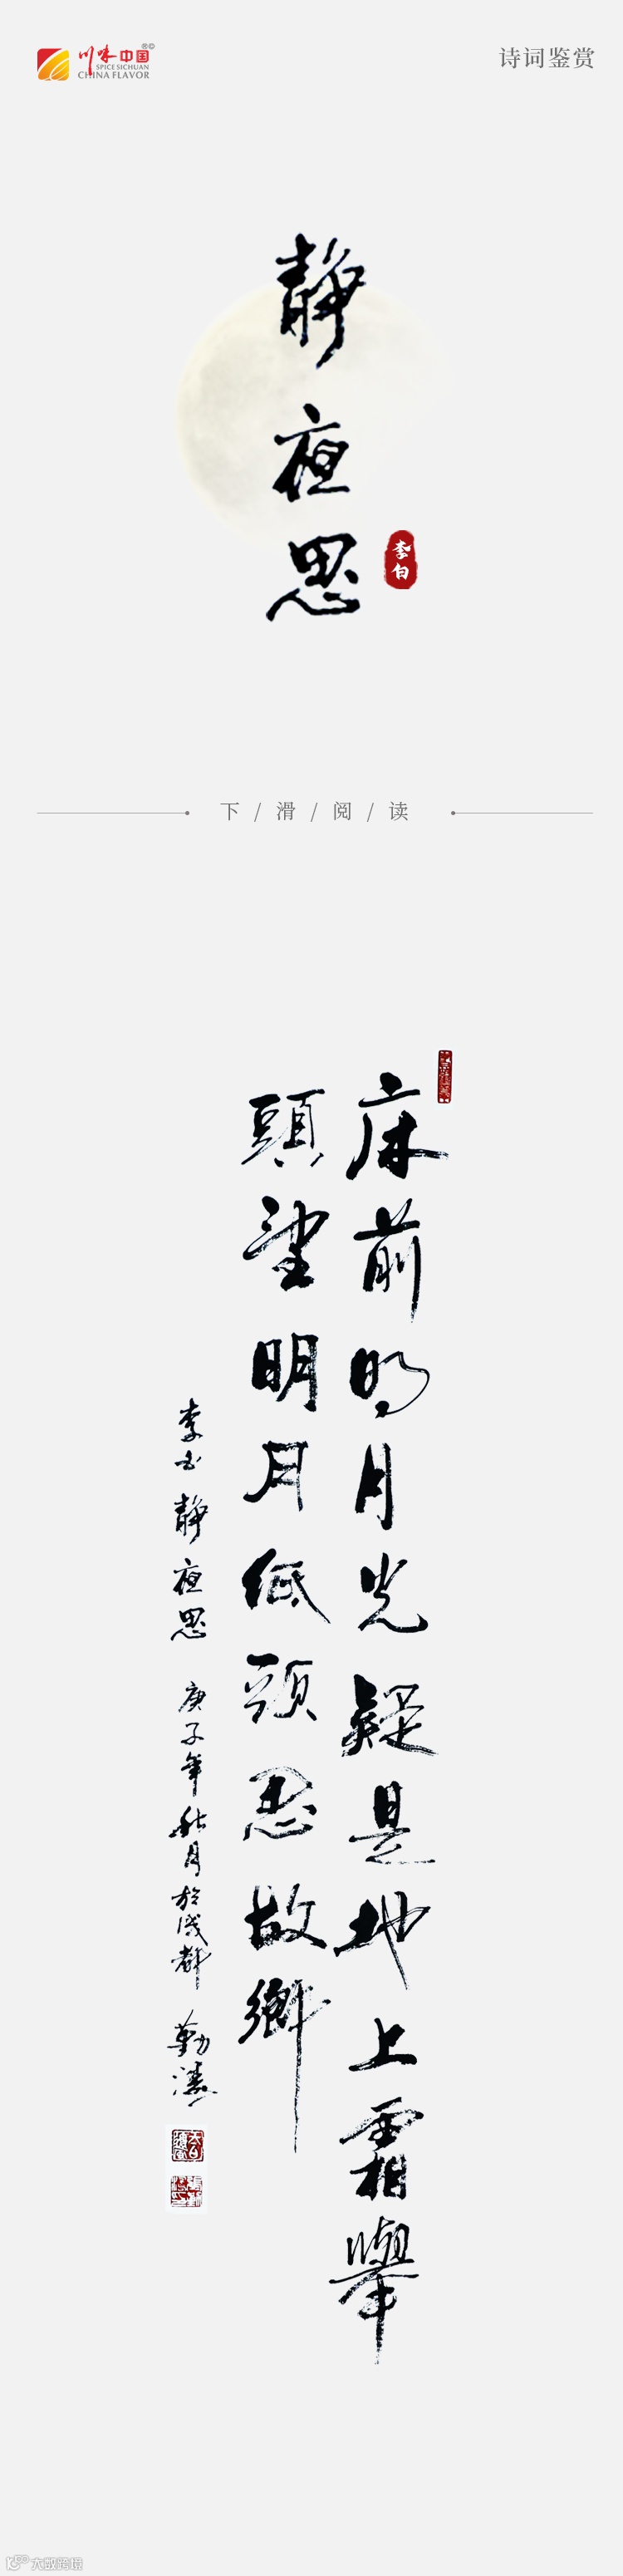 川味中国®©
SPICE SICHUAN
CHINA FLAVOR
诗词鉴赏
静夜思
李白
下/滑/阅/读
床前明月光疑是地上霜舉
頭望明月低頭思故鄉
李白静夜思 庚子年秋月於成都 勤
大数跨境